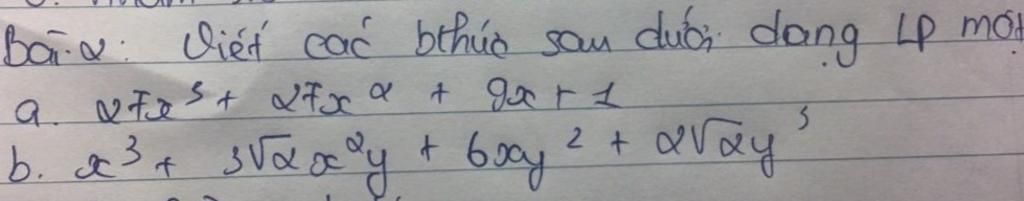 Bài 2: Viết các bthức sau dưới dạng LP một
a. 27x³ + 27x² + 9x + 1
b. x³ + 3√2x²y + 6xy² + 2√2y³